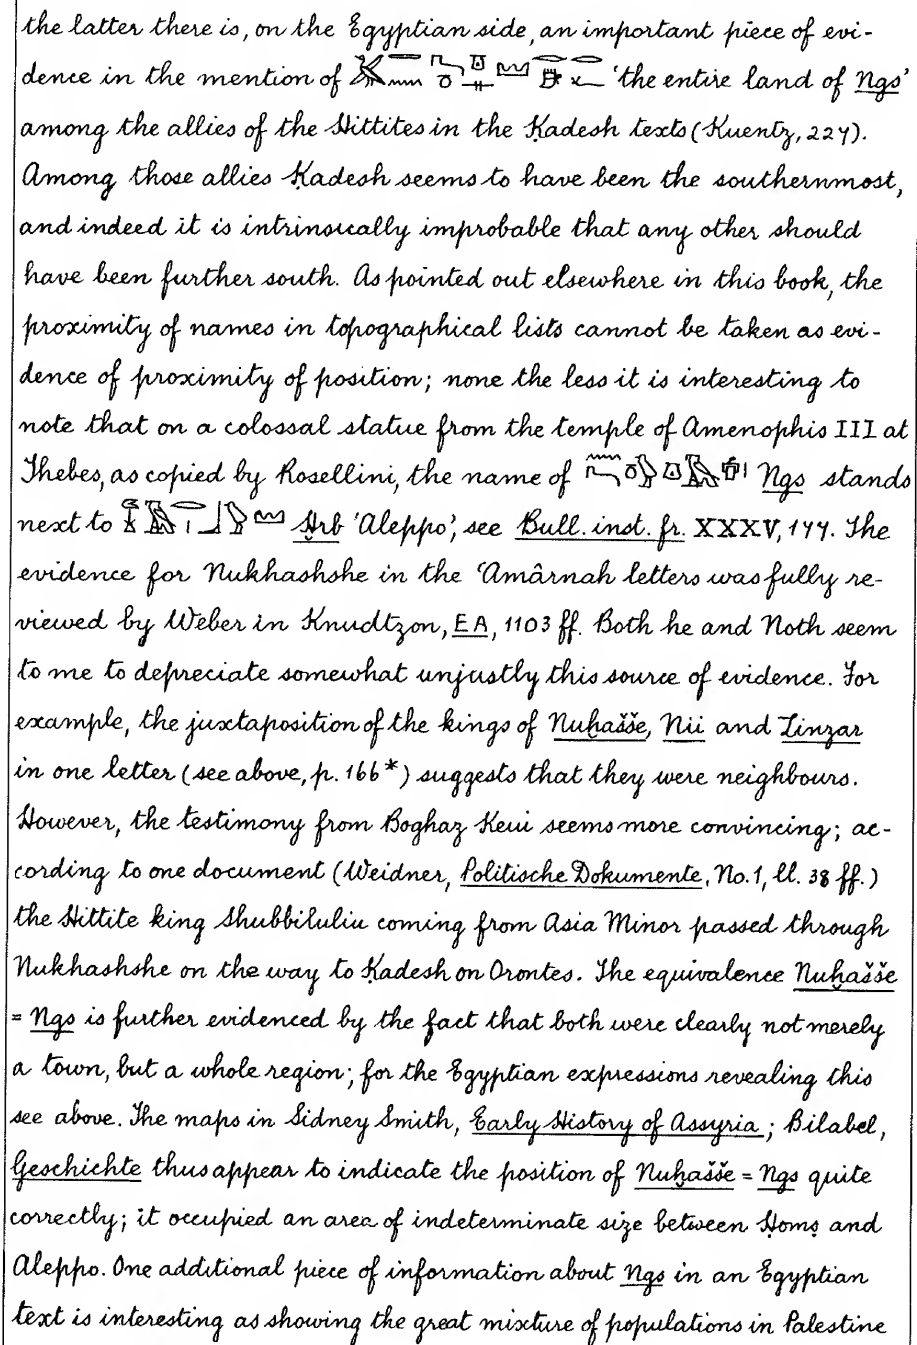 the latter there is, on the Egyptian side, an important piece of evi-
dence in the mention of 'the entire land of Ngs'
among the allies of the Hittites in the Ḳadesh texts (Kuentz, 227).
Among those allies Ḳadesh seems to have been the southernmost,
and indeed it is intrinsically improbable that any other should
have been further south. As pointed out elsewhere in this book, the
proximity of names in topographical lists cannot be taken as evi-
dence of proximity of position; none the less it is interesting to
note that on a colossal statue from the temple of Amenophis III at
Thebes, as copied by Rosellini, the name of Ngs stands
next to Ḫrb 'Aleppo', see Bull. inst. fr. XXXV, 177. The
evidence for Nukhashshe in the 'Amârnah letters was fully re-
viewed by Weber in Knudtzon, EA, 1103 ff. Both he and Noth seem
to me to depreciate somewhat unjustly this source of evidence. For
example, the juxtaposition of the kings of Nuḫašše, Nii and Zinzar
in one letter (see above, p. 166*) suggests that they were neighbours.
However, the testimony from Boghaz Keui seems more convincing; ac-
cording to one document (Weidner, Politische Dokumente, No. 1, ll. 38 ff.)
the Hittite king Shubbiluliu coming from Asia Minor passed through
Nukhashshe on the way to Ḳadesh on Orontes. The equivalence Nuḫašše
= Ngs is further evidenced by the fact that both were clearly not merely
a town, but a whole region; for the Egyptian expressions revealing this
see above. The maps in Sidney Smith, Early History of Assyria; Bilabel,
Geschichte thus appear to indicate the position of Nuḫašše = Ngs quite
correctly; it occupied an area of indeterminate size between Ḥomṣ and
Aleppo. One additional piece of information about Ngs in an Egyptian
text is interesting as showing the great mixture of populations in Palestine